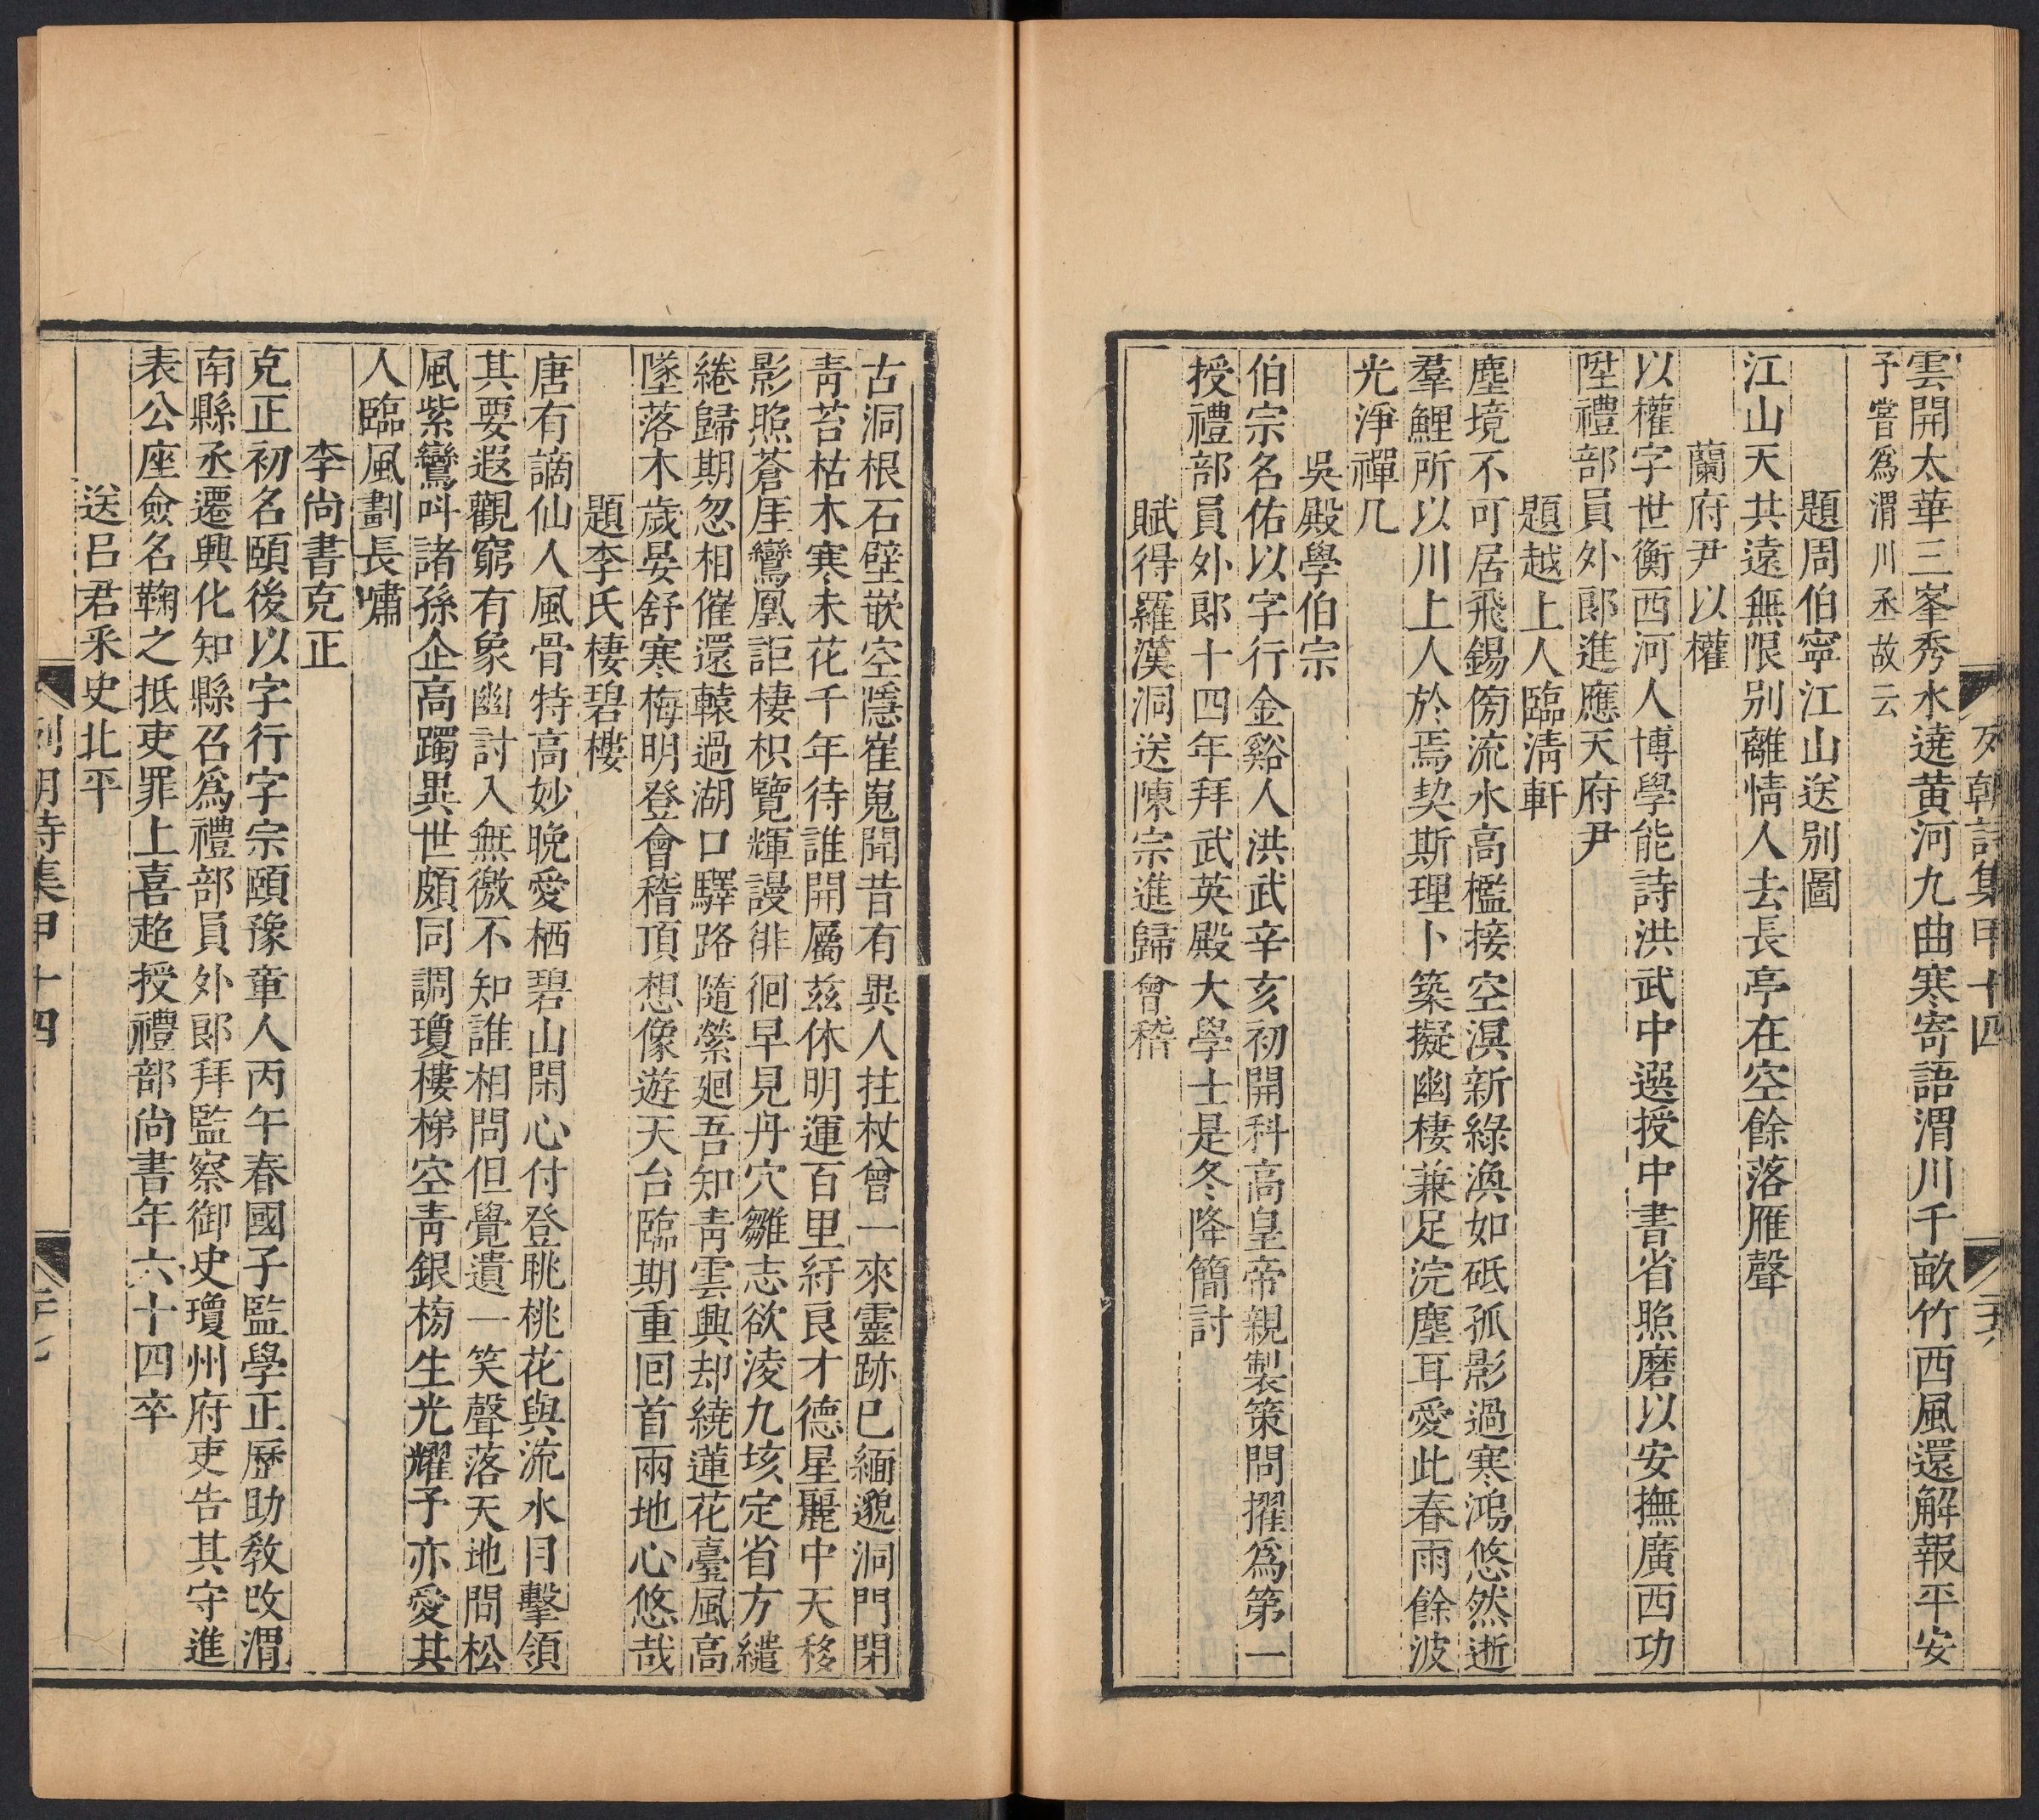 列朝詩集甲十四
雲開太華三峯秀水遶黄河九曲寒寄語渭川千畝竹西風還解報平安
予嘗爲渭川丞故云
題周伯寧江山送别圖
江山天共遠無限别離情人去長亭在空餘落雁聲
蘭府尹以權
以權字世衡西河人博學能詩洪武中選授中書省照磨以安撫廣西功
陞禮部員外郎進應天府尹
題越上人臨淸軒
塵境不可居飛錫傍流水高檻接空溟新綠渙如砥孤影過寒鴻悠然逝
羣鯉所以川上人於焉契斯理卜築擬幽棲兼足浣塵耳愛此春雨餘波
光淨禪几
吳殿學伯宗
伯宗名佑以字行金谿人洪武辛亥初開科高皇帝親製策問擢爲第一
授禮部員外郎十四年拜武英殿大學士是冬降簡討
賦得羅漢洞送陳宗進歸會稽
古洞根石壁嵌空隱崔嵬聞昔有異人拄杖曾一來靈跡已緬邈洞門閉
靑苔枯木寒未花千年待誰開屬茲休明運百里紆良才德星麗中天移
影照蒼厓鸞凰詎棲枳覽輝謾徘徊早見丹穴雛志欲淩九垓定省方繾
綣歸期忽相催還轅過湖口驛路隨縈廻吾知靑雲興却繞蓮花臺風高
墜落木歲晏舒寒梅明登會稽頂想像遊天台臨期重回首兩地心悠哉
題李氏棲碧樓
唐有謫仙人風骨特高妙晩愛栖碧山閑心付登眺桃花與流水目擊領
其要遐觀窮有象幽討入無徼不知誰相問但覺遺一笑聲落天地間松
風紫鸞呌諸孫企高躅異世頗同調瓊樓梯空靑銀榜生光耀子亦愛其
人臨風劃長嘯
李尙書克正
克正初名頤後以字行字宗頤豫章人丙午春國子監學正歷助敎改渭
南縣丞遷興化知縣召爲禮部員外郎拜監察御史瓊州府吏告其守進
表公座僉名鞠之抵吏罪上喜超授禮部尙書年六十四卒
送呂君釆史北平
列朝詩集甲十四